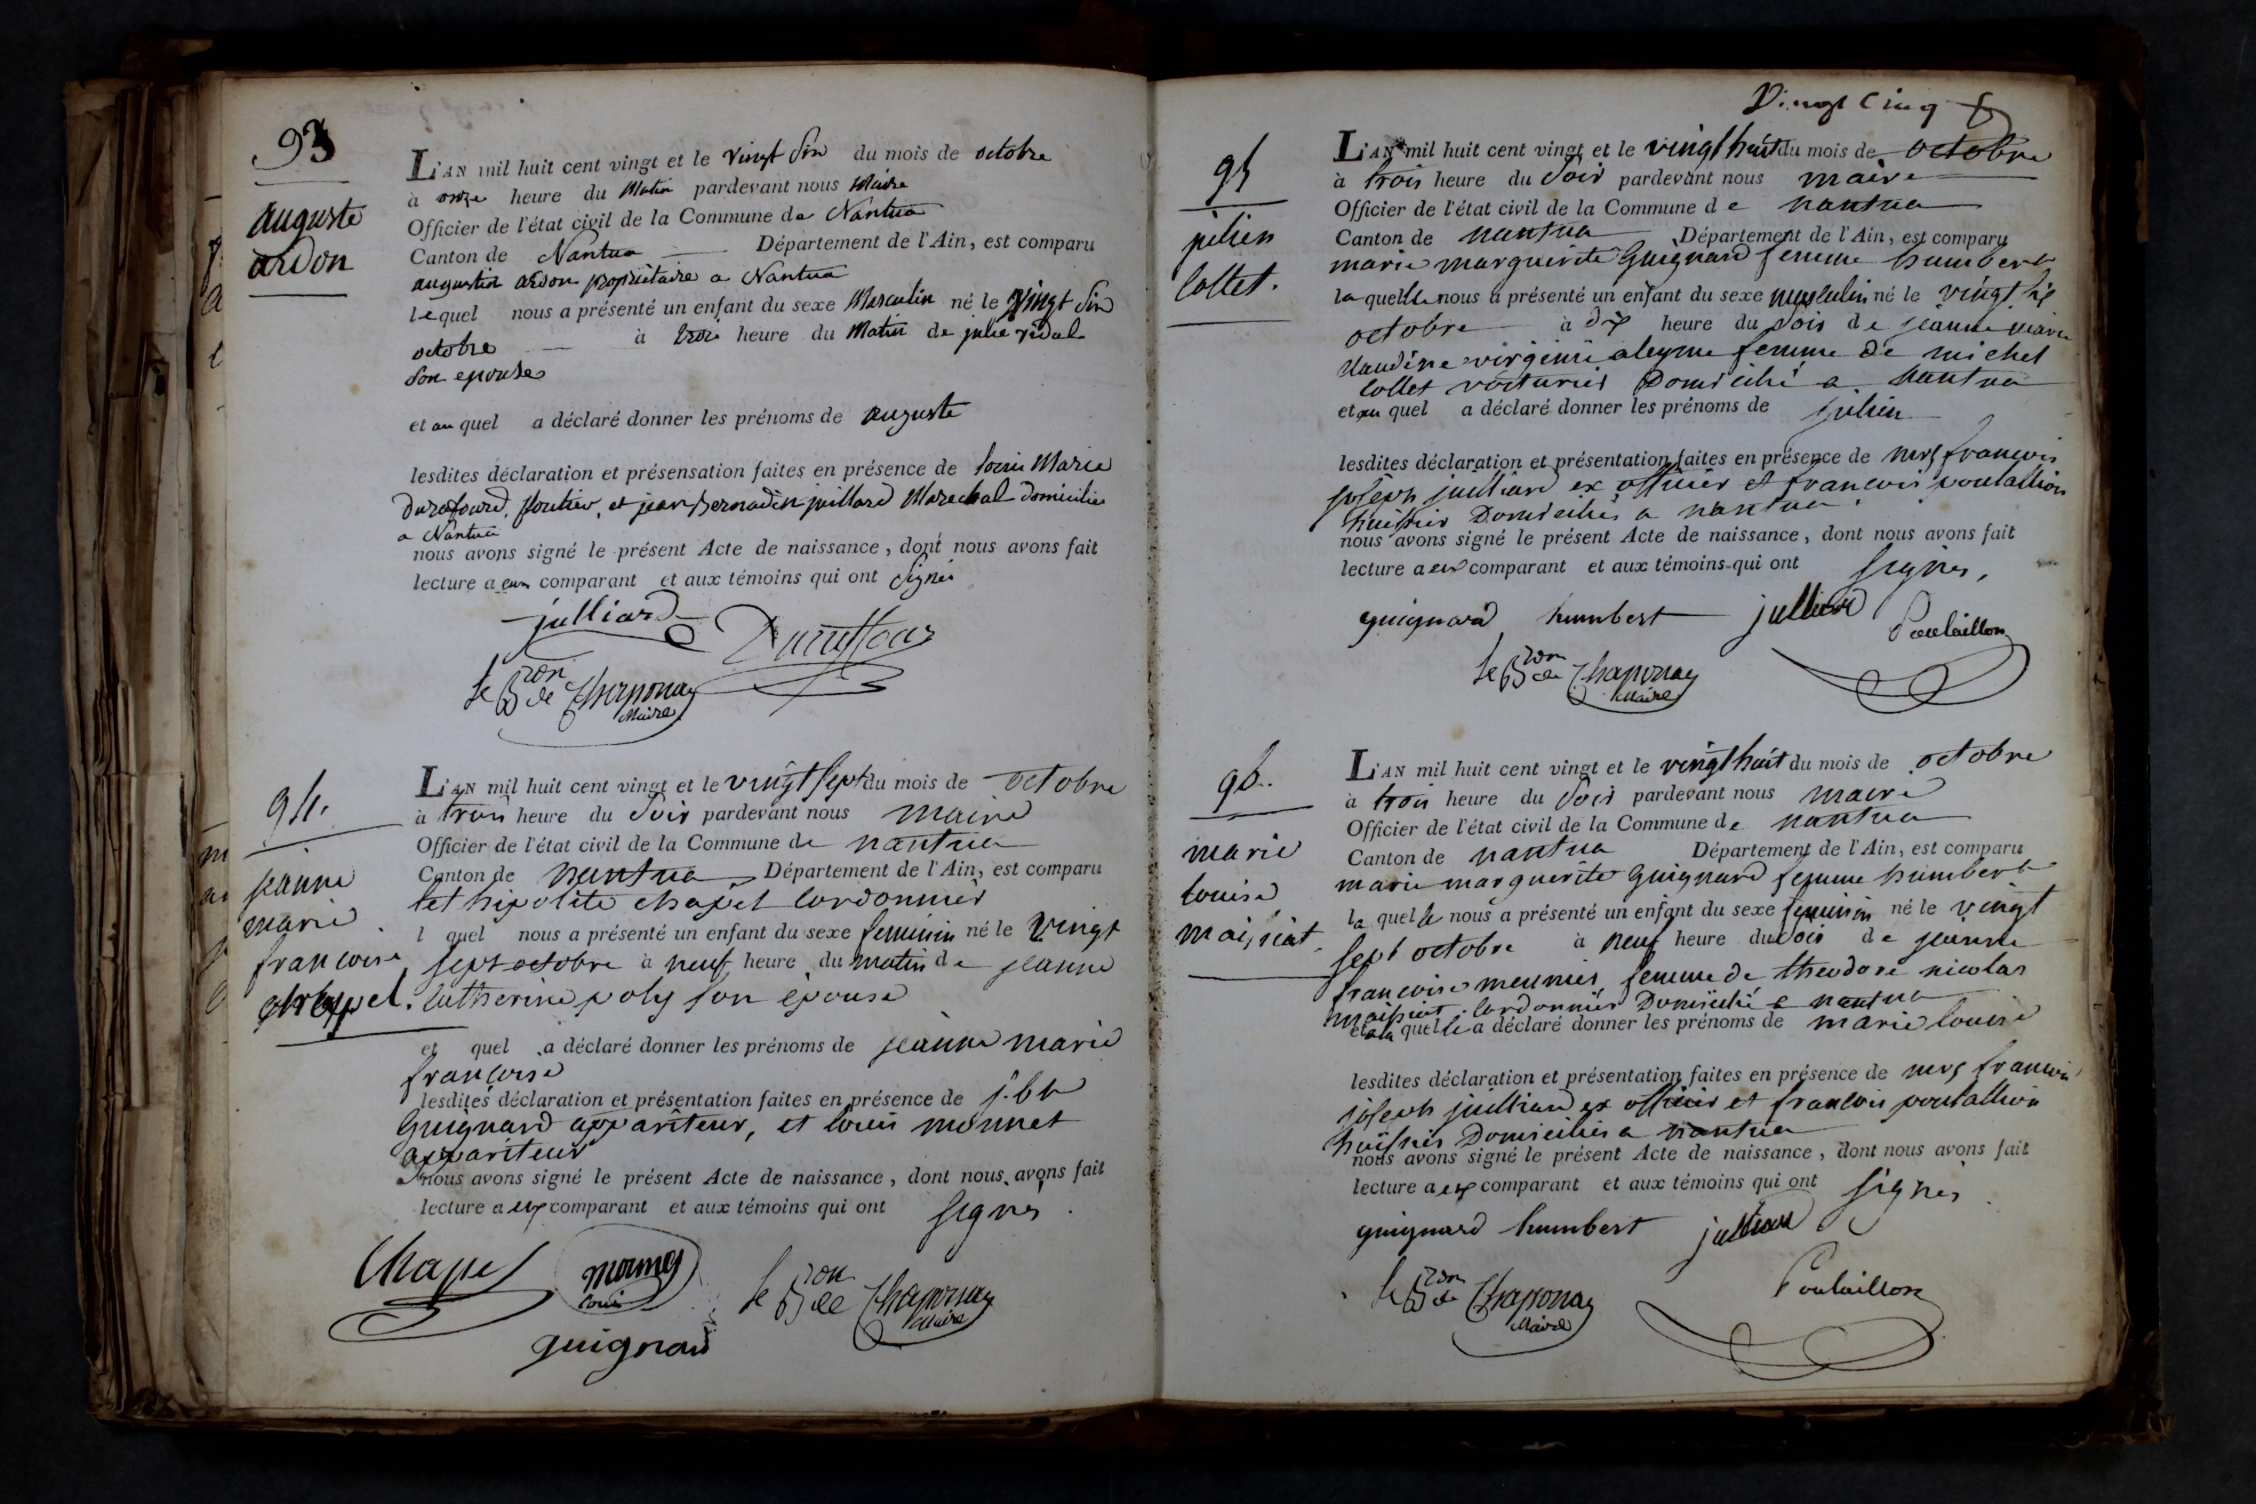 93
auguste
ardon
L'AN mil huit cent vingt et le vingt Six du mois de octobre
à onze heure du Matin pardevant nous Maire
Officier de l'état civil de la Commune de Nantua
Canton de Nantua Département de l'Ain, est comparu
augustin ardon propriétaire a Nantua
lequel nous a présenté un enfant du sexe Masculin né le vingt Six
octobre à trois heure du Matin de julie vidal
Son epouse
et au quel a déclaré donner les prénoms de auguste
lesdites déclaration et présensation faites en présence de louis Marie
et jean Bernadin juillard Marechal domicilies
a Nantua
nous avons signé le présent Acte de naissance, dont nous avons fait
lecture a eux comparant et aux témoins qui ont Signés
julliard
le Bron de Chaponay
Maire
94.
jeanne
marie
francoise
chappel.
L'AN mil huit cent vingt et le vingt sept du mois de octobre
à trois heure du Soir pardevant nous maire
Officier de l'état civil de la Commune de nantua
Canton de nantua Département de l'Ain, est comparu
hipolite chapel cordonnier
l quel nous a présenté un enfant du sexe feminin né le vingt
sept octobre à neuf heure du matin de jeanne
catherine poly son épouse
et quel a déclaré donner les prénoms de jeanne marie
francoise
lesdites déclaration et présentation faites en présence de j. bte
Guignard appariteur, et louis monnet
appariteur
nous avons signé le présent Acte de naissance, dont nous avons fait
lecture a eux comparant et aux témoins qui ont signés.
Chapel
monnet
louis
le Bron de Chaponay
Maire
guignard
Vingt Cinq
95
julien
Collet.
L'AN mil huit cent vingt et le vingt huit du mois de octobre
à trois heure du Soir pardevant nous maire
Officier de l'état civil de la Commune de nantua
Canton de nantua Département de l'Ain, est comparu
marie marguerite Guignard femme humbert
laquelle nous a présenté un enfant du sexe masculin né le vingt six
octobre à dix heure du Soir de jeanne marie
claudine virginie aleyme femme de michel
Collet voiturier Domicilié a nantua
et au quel a déclaré donner les prénoms de julien
lesdites déclaration et présentation faites en présence de mrs francois
joseph juilliard ex officier et francois poulallion
huissier Domiciliés a nantua.
nous avons signé le présent Acte de naissance, dont nous avons fait
lecture a eux comparant et aux témoins qui ont signés,
guignard humbert julliard
Poulaillon
le Bron de Chaponay
Maire
96.
marie
louise
maissiat.
L'AN mil huit cent vingt et le vingt huit du mois de octobre
à trois heure du Soir pardevant nous maire
Officier de l'état civil de la Commune de nantua
Canton de nantua Département de l'Ain, est comparu
marie marguerite Guignard femme humbert
laquelle nous a présenté un enfant du sexe feminin né le vingt
sept octobre à neuf heure du Soir de jeanne
francoise meunier femme de theodore nicolas
maissiat cordonnier Domicilié a nantua
et a la quelle a déclaré donner les prénoms de marie louise
lesdites déclaration et présentation faites en présence de mrs francois
joseph juilliard ex officier et francois poulallion
huissier Domiciliés a nantua
nous avons signé le présent Acte de naissance, dont nous avons fait
lecture a eux comparant et aux témoins qui ont signés
guignard humbert julliard
le Bron de Chaponay
Maire
Poulaillon